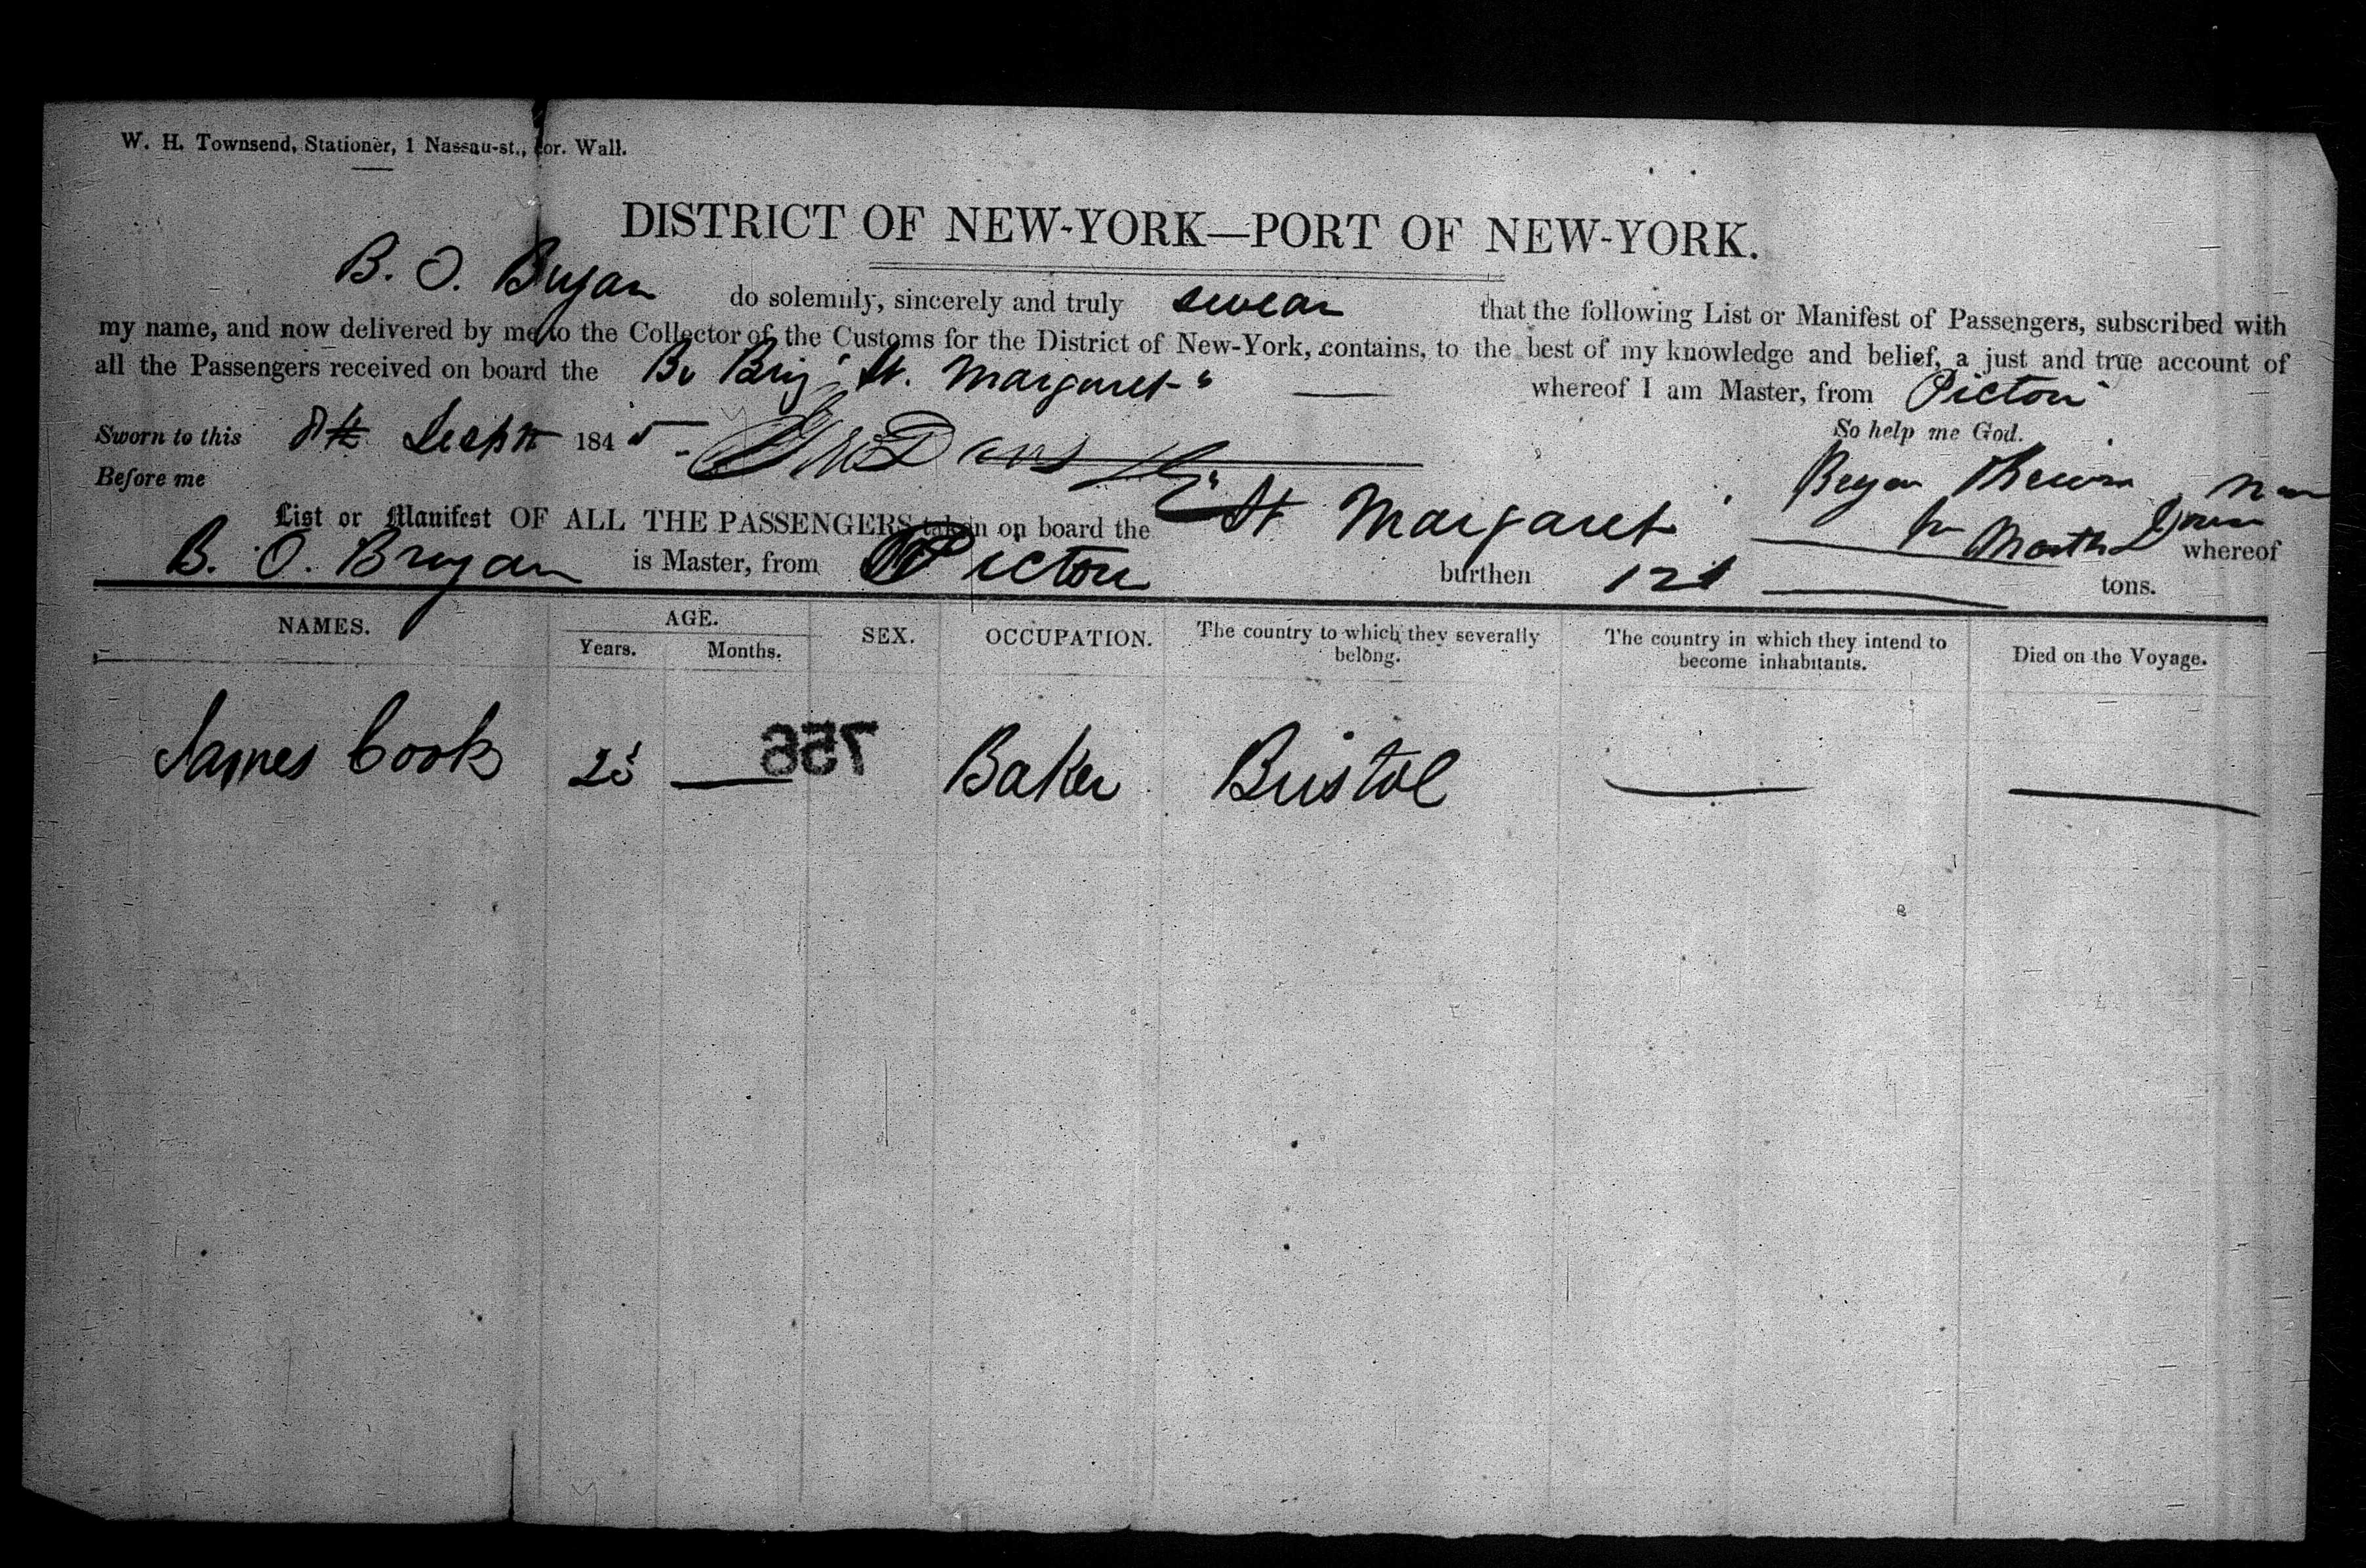 W. H. Townsend, Stationer, 1 Nassau-st., cor. Wall.
DISTRICT OF NEW-YORK—PORT OF NEW-YORK.
B. O. Bryan do solemnly, sincerely and truly swear that the following List or Manifest of Passengers, subscribed with
my name, and now delivered by me to the Collector of the Customs for the District of New-York, contains, to the best of my knowledge and belief, a just and true account of
all the Passengers received on board the Br Brig "St. Margaret" whereof I am Master, from Picton
Sworn to this 8th Sept 1845 So help me God.
Before me Bryan
List or Manifest OF ALL THE PASSENGERS taken on board the "St Margaret" whereof
B. O. Bryan is Master, from Picton burthen 121 tons.
NAMES. AGE. SEX. OCCUPATION. The country to which they severally belong. The country in which they intend to become inhabitants. Died on the Voyage.
Years. Months.
James Cook 25 — 756 Baker Bristol — —